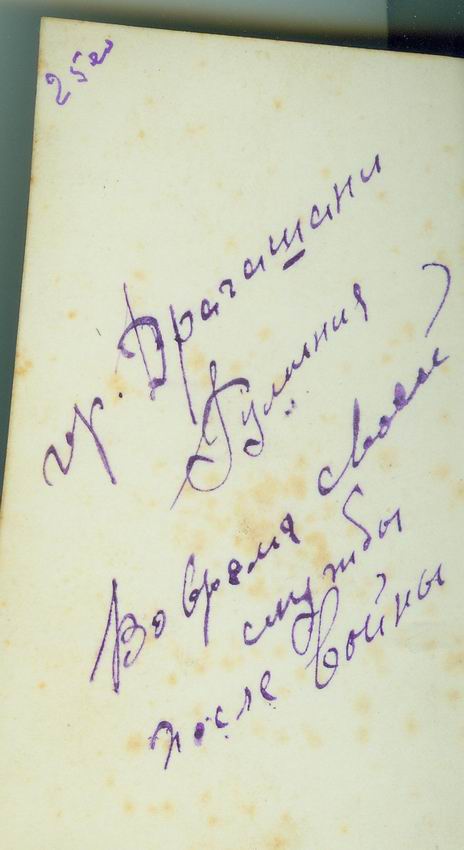 гр. Драгашани
Румыния
Во время своей
службы
после войны